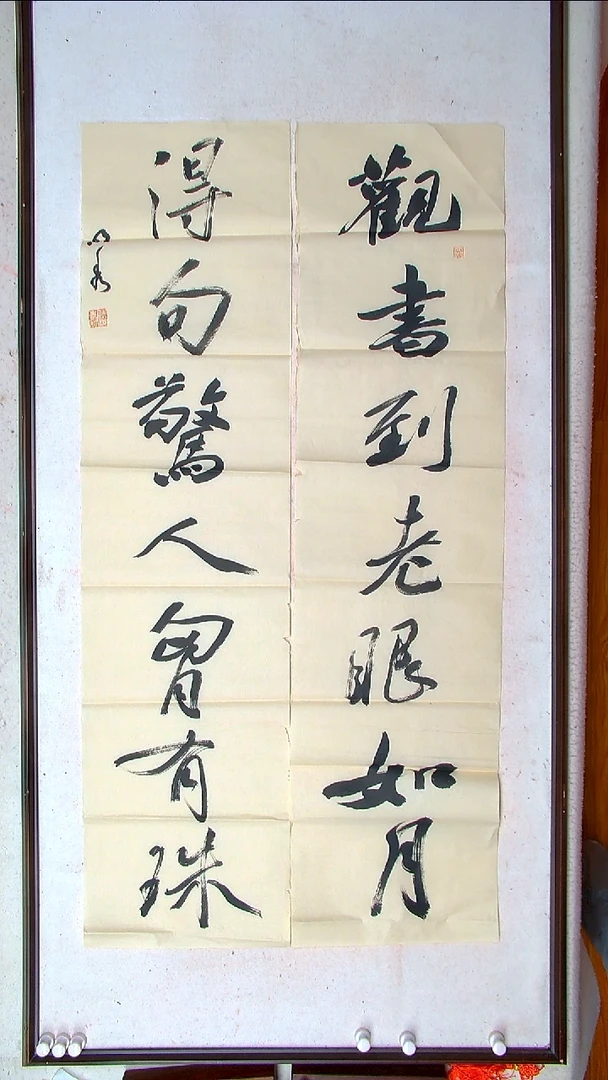 觀書到老眼如月
得句驚人胷有珠